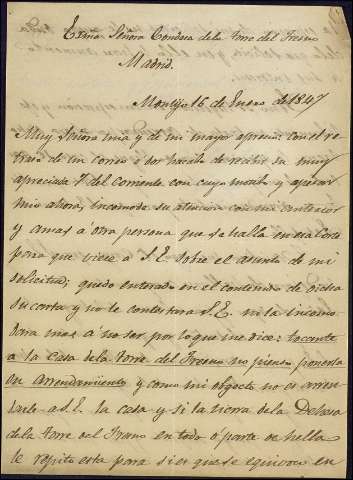 Exma Señora Condesa de la Torre del Fresno
Madrid.
Montijo 16 de Enero de 1847
Muy Señora mia y de mi mayor aprecio: con el re
traso de un correo ó dos he de recibir su muy
apreciada 7 del corriente con cuyo motivo y apesar
mio ahora, incomodo su atencion con mi contestacion
y amas a otra persona que se halla en esa Corte
para que viese a S. E. sobre el asunto de mi
solicitud; quedo enterado en el contenido de dicha
su carta y no le contestara S. E. ni la incomo
dara mas á no ser por lo que me dice: tocante
a la Casa de la Torre del Fresno no pienso ponerla
en arrendamiento y como mi obgecto no es arren
darle a S. E. la casa y si la tierra de la Dehesa
de la Torre del Fresno en todo ó parte de hella
le repito esta para si es que se equivoco en